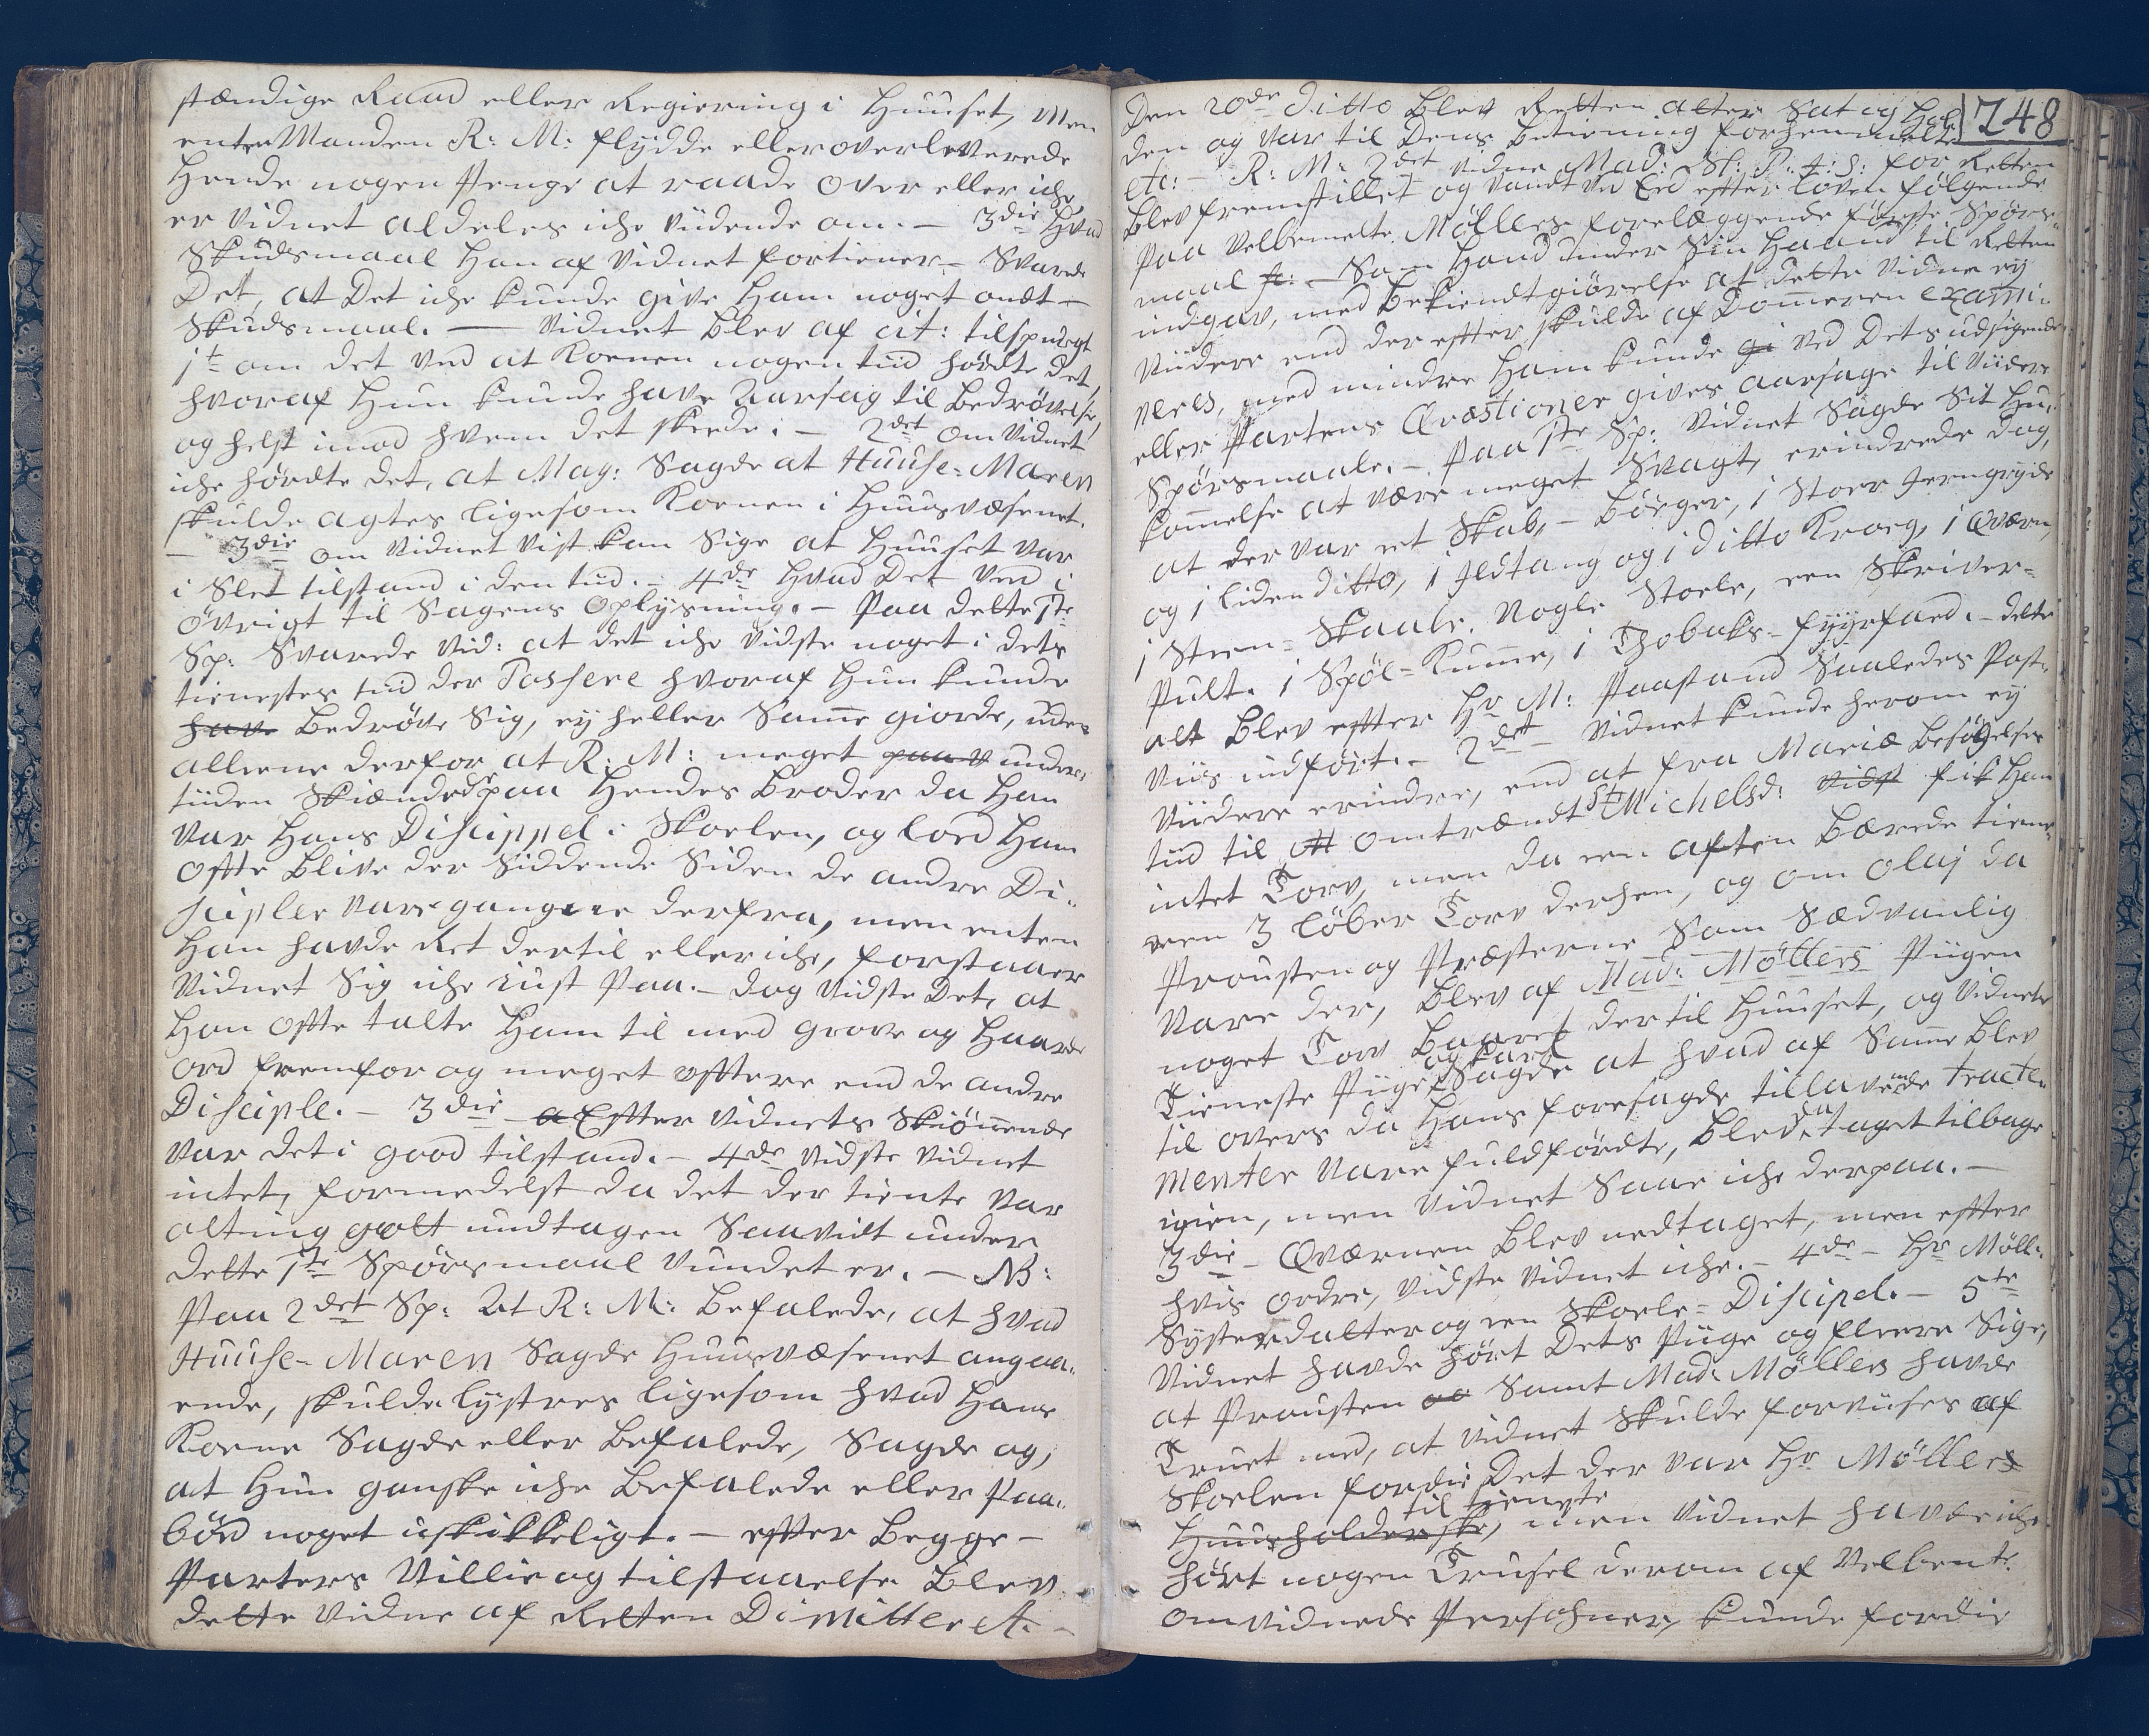 stændige Raad eller Regiering i Huuset, Men
enten Manden R: M: flydde eller overleverede
Hende nogen Penge at raade over eller iche
er Vidnet aldeles iche viidende om. — 3die Hvad
Skudsmaal Han af Vidnet fortiener — Svarede
Det, at Det iche kunde give Ham noget ondt —
Skudsmaal. — Vidnet blev af cit: tilspurgt
1t om det Ved at Konen nogen tiid hørdte det,
hvoraf Hun kunde have Aarsag til Bedrøvelse,
og helst imod hvem det skede. — 2det om Vidnet
iche hørdte det, at Mag: Sagde at Huuse-Maren
skulde agtes ligesom Konen i Huusvæsenet.
— 3die om Vidnet Vist kan Sige at Huuset var
i Slet tilstand i den tiid. — 4de Hvad Det Ved i
øvrigt til Sagens Oplysning. — Paa dette 1te
Sp: Svarede Vid: at det iche Vidste noget i dets
tienestes tiid der Passere hvoraf Hun kunde
have Bedrøve Sig, ey heller Samme giorde, uden
alleene derfor at R: M: meget under:
tiiden Skiændede paa Hendes Broder da Han
var Hans Discippel i Skoelen, og loed Ham
offte blive der Siddende Siden de andre Di:
sciple vare gangne derfra, men enten
Han havde Ret dertil eller iche, forstaaer
Vidnet Sig iche iust Paa. — dog Vidste Det, at
Han offte talte Ham til med grove og Haarde
ord fremfor og meget offtere end de andre
Disciple. — 3die — Effter Vidnets Skiønnende
var det i good tilstand. — 4de Vidste Vidnet
intet, formedelst da det der tiente var
alting godt undtagen Saavidt under
dette 1te Spørsmaal Vundet er. — NB:
Paa 2det Sp: At R: M: Befalede, at hvad
Huuse-Maren Sagde Huusvæsenet angaa:
ende, skulde lystres ligesom hvad Hans
Konne Sagde eller Befalede, Sagde og,
at Hun ganske iche Befalede eller Paa:
bød noget uskikkeligt. — effter Begge —
Parters Villie og tilstaaelse Blev
dette Vidne af Retten Dimitteret. —
Den 20de Ditto Blev Retten atter Sat og Hol: 248
den og var til Dens Betiening forhenmelte
etc: — R: M: 2det Vidne Mad: Sl: P. for Retten
Blev fremstillet og vandt ved Eed effter loven følgende
Paa Velbemelte Møllers forelæggende første Spørs
maal — Som Hand under Sin Haand til Retten
indgav, med Bekiendtgiørelse at dette Vidne ey
Viidere end der effter skulde af Domeren exami:
neres, med mindre Ham kunde gi Ved Dets udsigende
eller Partens Qvæstioner gives aarsage til Viidere
Spørsmaale. — Paa 1te Sp: Vidnet Sagde Sit Hu:
kommelse at være meget Svagt, erindrede dog,
at der var et Skab, — Börger, 1 Stoer Jerngryde
og 1 liden ditto, 1 Ildtang og 1 ditto Kroeg, 1 Qværn,
1 Steen-Skaale. Nogle Stoele, een Skriver-
Pult. 1 Spöl-Kumme, 1 Thobaks-fyyrfad. — dette
alt Blev effter Hr M: Paastand Saaledes Post:
Viis indført. — 2det — Vidnet kunde herom ey
Viidere erindre, end at fra Mariæ Besøgelses
tiid til omtrændt St Michelsd: fik Han
intet Torv, men da een afften Bærede tiene:
ren 3 löber Torv derhen, og om Olaj da
Prousten og Præsterne Som Sædvanlig
vare der, Blev af Mad: Möllers Piigen
noget Torv Baaret dertil Huuset, og Vidnets
Tieneste Piige og Karl Sagde at hvad af Samme Blev
til overs da Hans foresagde tillavende tracte:
menter vare fuldførdte, Blev da taget tilbage
igien, men Vidnet Saae iche derpaa. —
3die — Qværnen Blev nedtaget, men effter
hvis ordre, Vidste Vidnet iche. — 4de — Hr Möll:
Systerdatter og een Skoele-Discipel. — 5te
Vidnet havde hørt Dets Piige og fleere Sige,
at Prousten Samt Mad: Möllers havde
Truet med, at Vidnet Skulde forviises af
Skoelen fordie Det der var Hr Möllers
til tieneste
Huusholderske, men Vidnet havde iche
hørt nogen Trusel derom af Velbente
omvidnede Persohner, kunde fordie